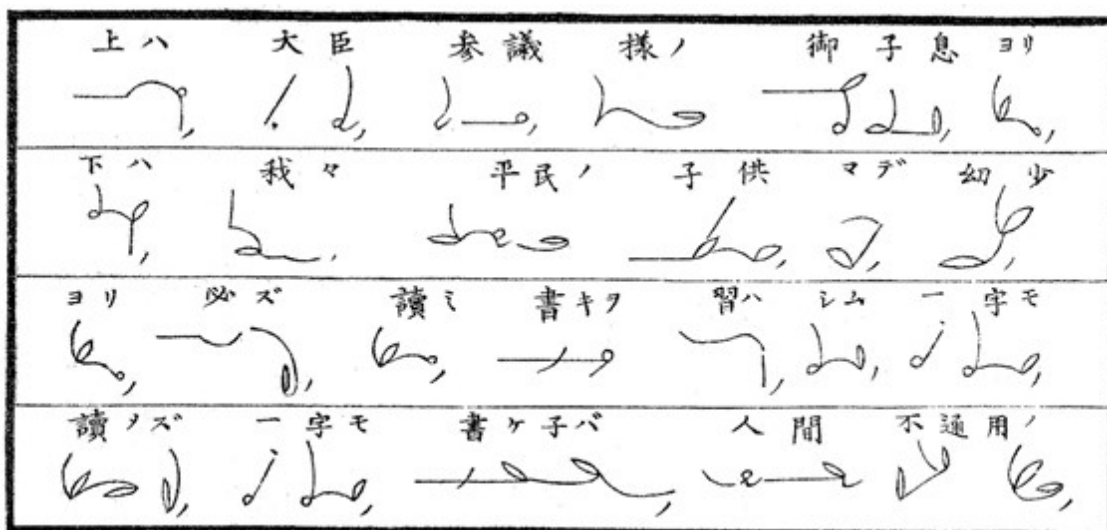 上ハ 大臣 参議 様ノ 御子息 ヨリ
下ハ 我々 平民ノ 子供 マデ 幼少
ヨリ 必ズ 讀ミ 書キヲ 習ハ シム 一字モ
讀メズ 一字モ 書ケ子バ 人間 不通用ノ